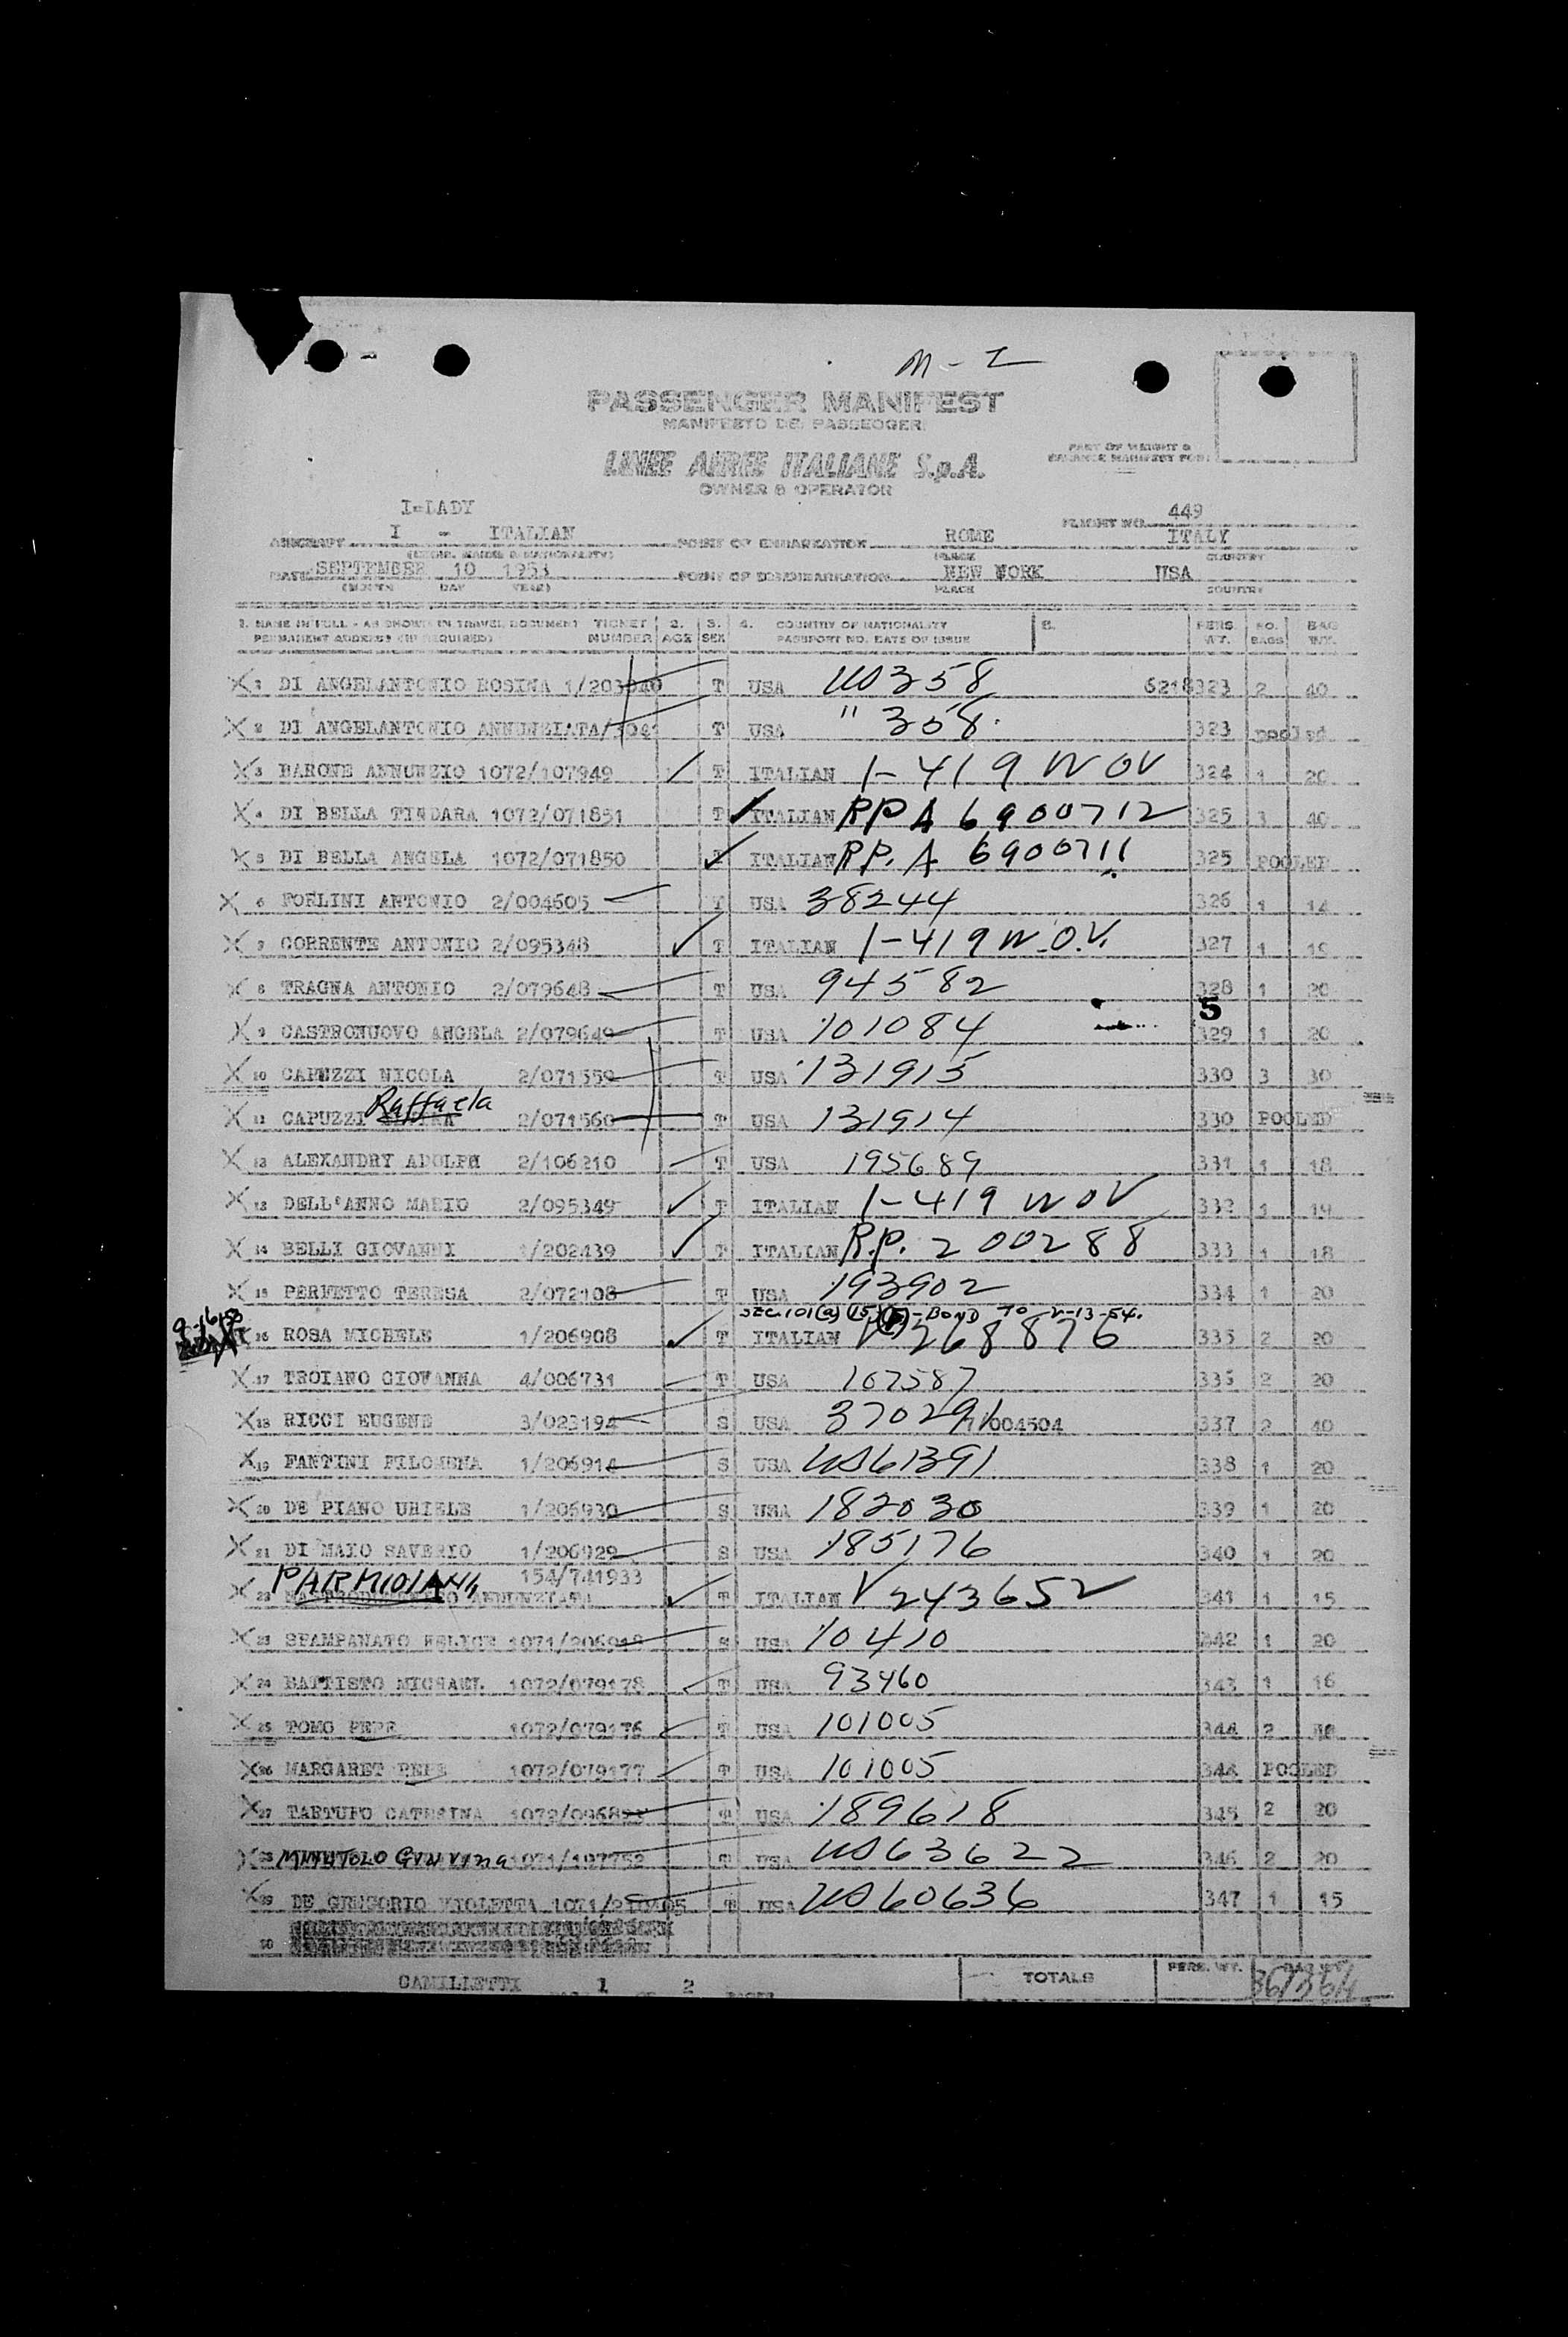 M - I
PASSENGER MANIFEST
MANIFESTO DEI PASSEGGERI
LINEE AEREE ITALIANE S.p.A.
OWNER & OPERATOR
PART OF WEIGHT &
BALANCE MANIFEST FOR:
I-LADY
FLIGHT NO. 449
AIRCRAFT I - ITALIAN POINT OF EMBARKATION ROME ITALY
PLACE COUNTRY
DATE SEPTEMBER 10 1953 POINT OF DISEMBARKATION NEW YORK USA
(MONTH DAY YEAR) PLACE COUNTRY
1. NAME IN FULL - AS SHOWN IN TRAVEL DOCUMENT TICKET 2. 3. 4. COUNTRY OF NATIONALITY 5. PERS. NO. BAG
PERMANENT ADDRESS (IF REQUIRED) NUMBER AGE SEX PASSPORT NO. DATE OF ISSUE WT. BAGS WT.
X 1 DI ANGELANTONIO ROSINA T USA 358 6218323 2 40
X 2 DI ANGELANTONIO T USA " 358. 323 pooled
X 3 BARONE ANNUNZIO 1072/107949 T ITALIAN 1-419 WOV 324 1 20
X 4 DI BELLA TINDARA 1072/071851 T ITALIAN RP A 6900712 325 3 40
X 5 DI BELLA ANGELA 1072/071850 T ITALIAN R.P. A 6900711 325 POOLED
X 6 FORLINI ANTONIO 2/004605 T USA 38244 326 1 14
X 7 CORRENTE ANTONIO 2/095348 T ITALIAN 1-419 W.O.V. 327 1 19
X 8 TRAGNA ANTONIO 2/079648 T USA 94582 328 1 20
5
X 9 CASTRONUOVO ANGELA 2/079649 T USA 101084 329 1 20
X 10 CAPUZZI NICOLA 2/071559 T USA 131915 330 3 30
Raffaela
X 11 CAPUZZI 2/071560 T USA 131914 330 POOLED
X 12 ALEXANDRY ADOLPH 2/106210 T USA 195689 331 1 18
X 13 DELL'ANNO MARIO 2/095349 T ITALIAN 1-419 WOV 332 1 19
X 14 BELLI GIOVANNI 1/202439 T ITALIAN R.P. 200288 333 1 18
X 15 PERFETTO TERESA 2/072108 T USA 193902 334 1 20
SEC. 101(a)(15) - BOND TO
X 16 ROSA MICHELE 1/206908 T ITALIAN V 268876 335 2 20
X 17 TROIANO GIOVANNA 4/006731 T USA 107587 2 20
X 18 RICCI EUGENE 3/023194 S USA 337 2 40
X 19 FANTINI FILOMENA 1/206914 S USA 61391 338 1 20
X 20 DE PIANO URIELE 1/206930 S USA 182030 339 1 20
X 21 DI MAIO SAVERIO 1/206929 S USA 185176 340 1 20
154/741933
X 22 T ITALIAN V 243652 341 1 15
X 23 SPAMPANATO FELICE 1071/206918 S USA 10410 342 1 20
X 24 BATTISTO MICHAEL 1072/079178 T USA 93460 343 1 16
X 25 TOMO PEPE 1072/079176 T USA 101005 344 2
X 26 MARGARET PEPE 1072/079177 T USA 101005 344 POOLED
X 27 TARTUFO CATERINA T USA 189618 345 2 20
X 28 MINUTOLO T USA 63622 346 2 20
X 29 DE GREGORIO VIOLETTA T USA 60636 347 1 15
30
CAMILLETTI 1 2 TOTALS PERS. WT. BAG WT.